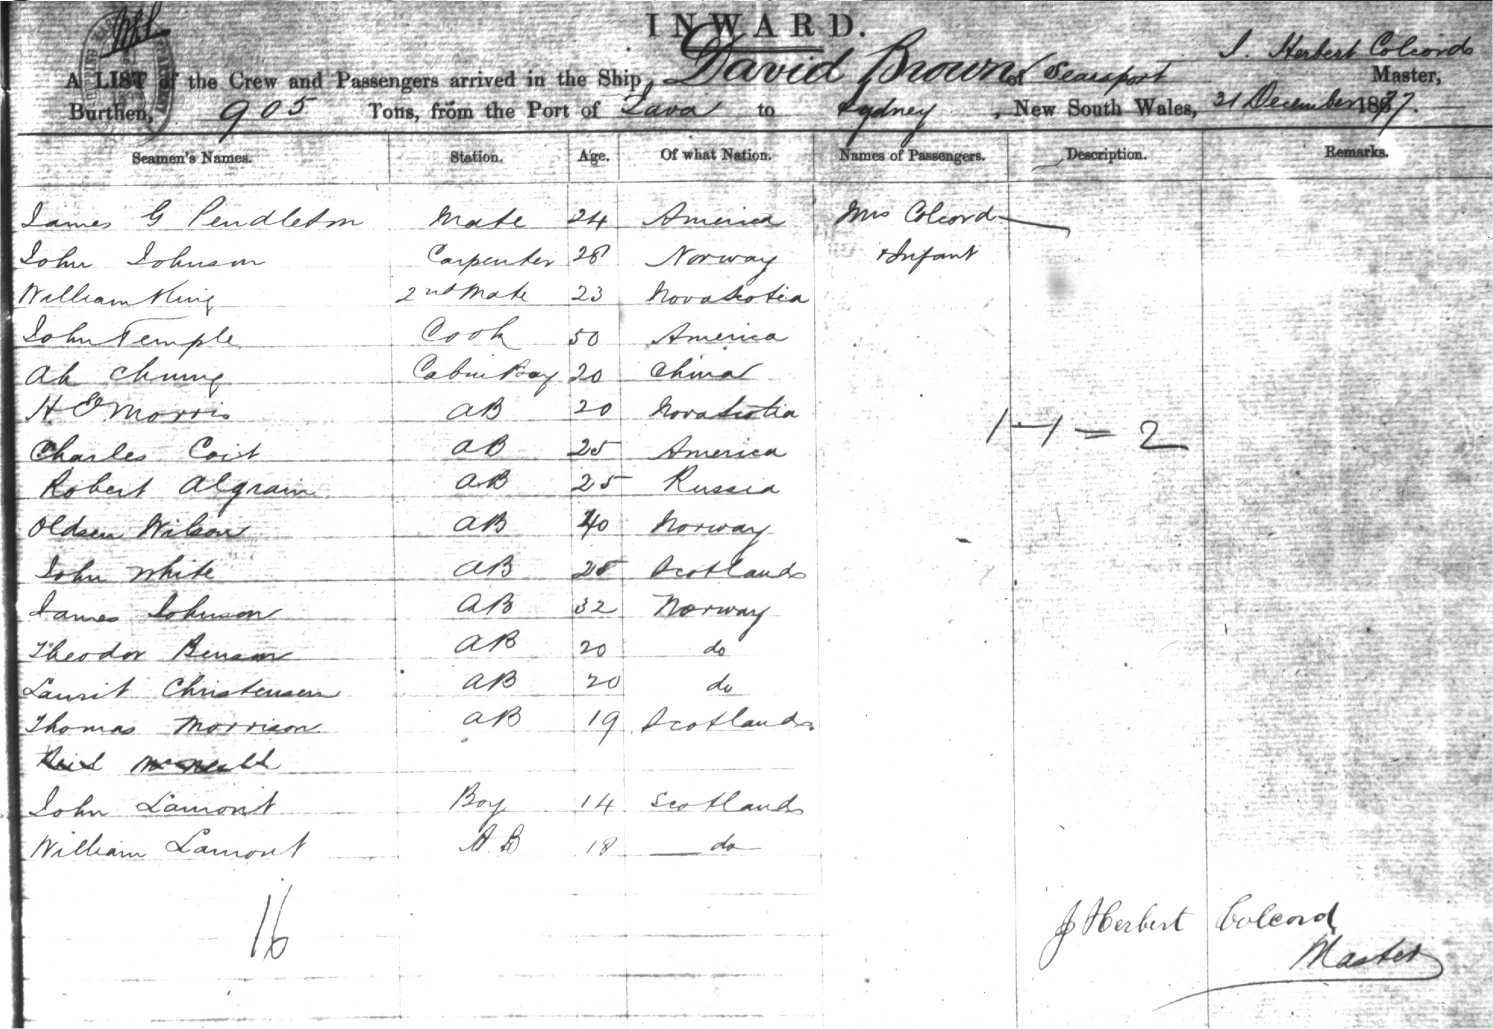 INWARD.
A LIST of the Crew and Passengers arrived in the Ship, David Brown of Searsport J. Herbert Colcord Master,
Burthen, 905 Tons, from the Port of Java to Sydney, New South Wales, 31 December 1877.
Seamen's Names. Station. Age. Of what Nation. Names of Passengers. Description. Remarks.
James G Pendleton Mate 24 America Mrs Colcord
John Johnson Carpenter 28 Norway & Infant
William King 2nd Mate 23 Nova Scotia
John Temple Cook 50 America
Ah Chung Cabin Boy 20 China
H E Morris AB 20 Nova Scotia
1-1=2
Charles Coit AB 25 America
Robert Algram AB 25 Russia
Oldsen Wilson AB 40 Norway
John White AB 25 Scotland
James Johnson AB 32 Norway
Theodor Benson AB 20 do
Laurit Christensen AB 20 do
Thomas Morrison AB 19 Scotland
John Lamont Boy 14 Scotland
William Lamont AB 18 do
16
J Herbert Colcord
Master